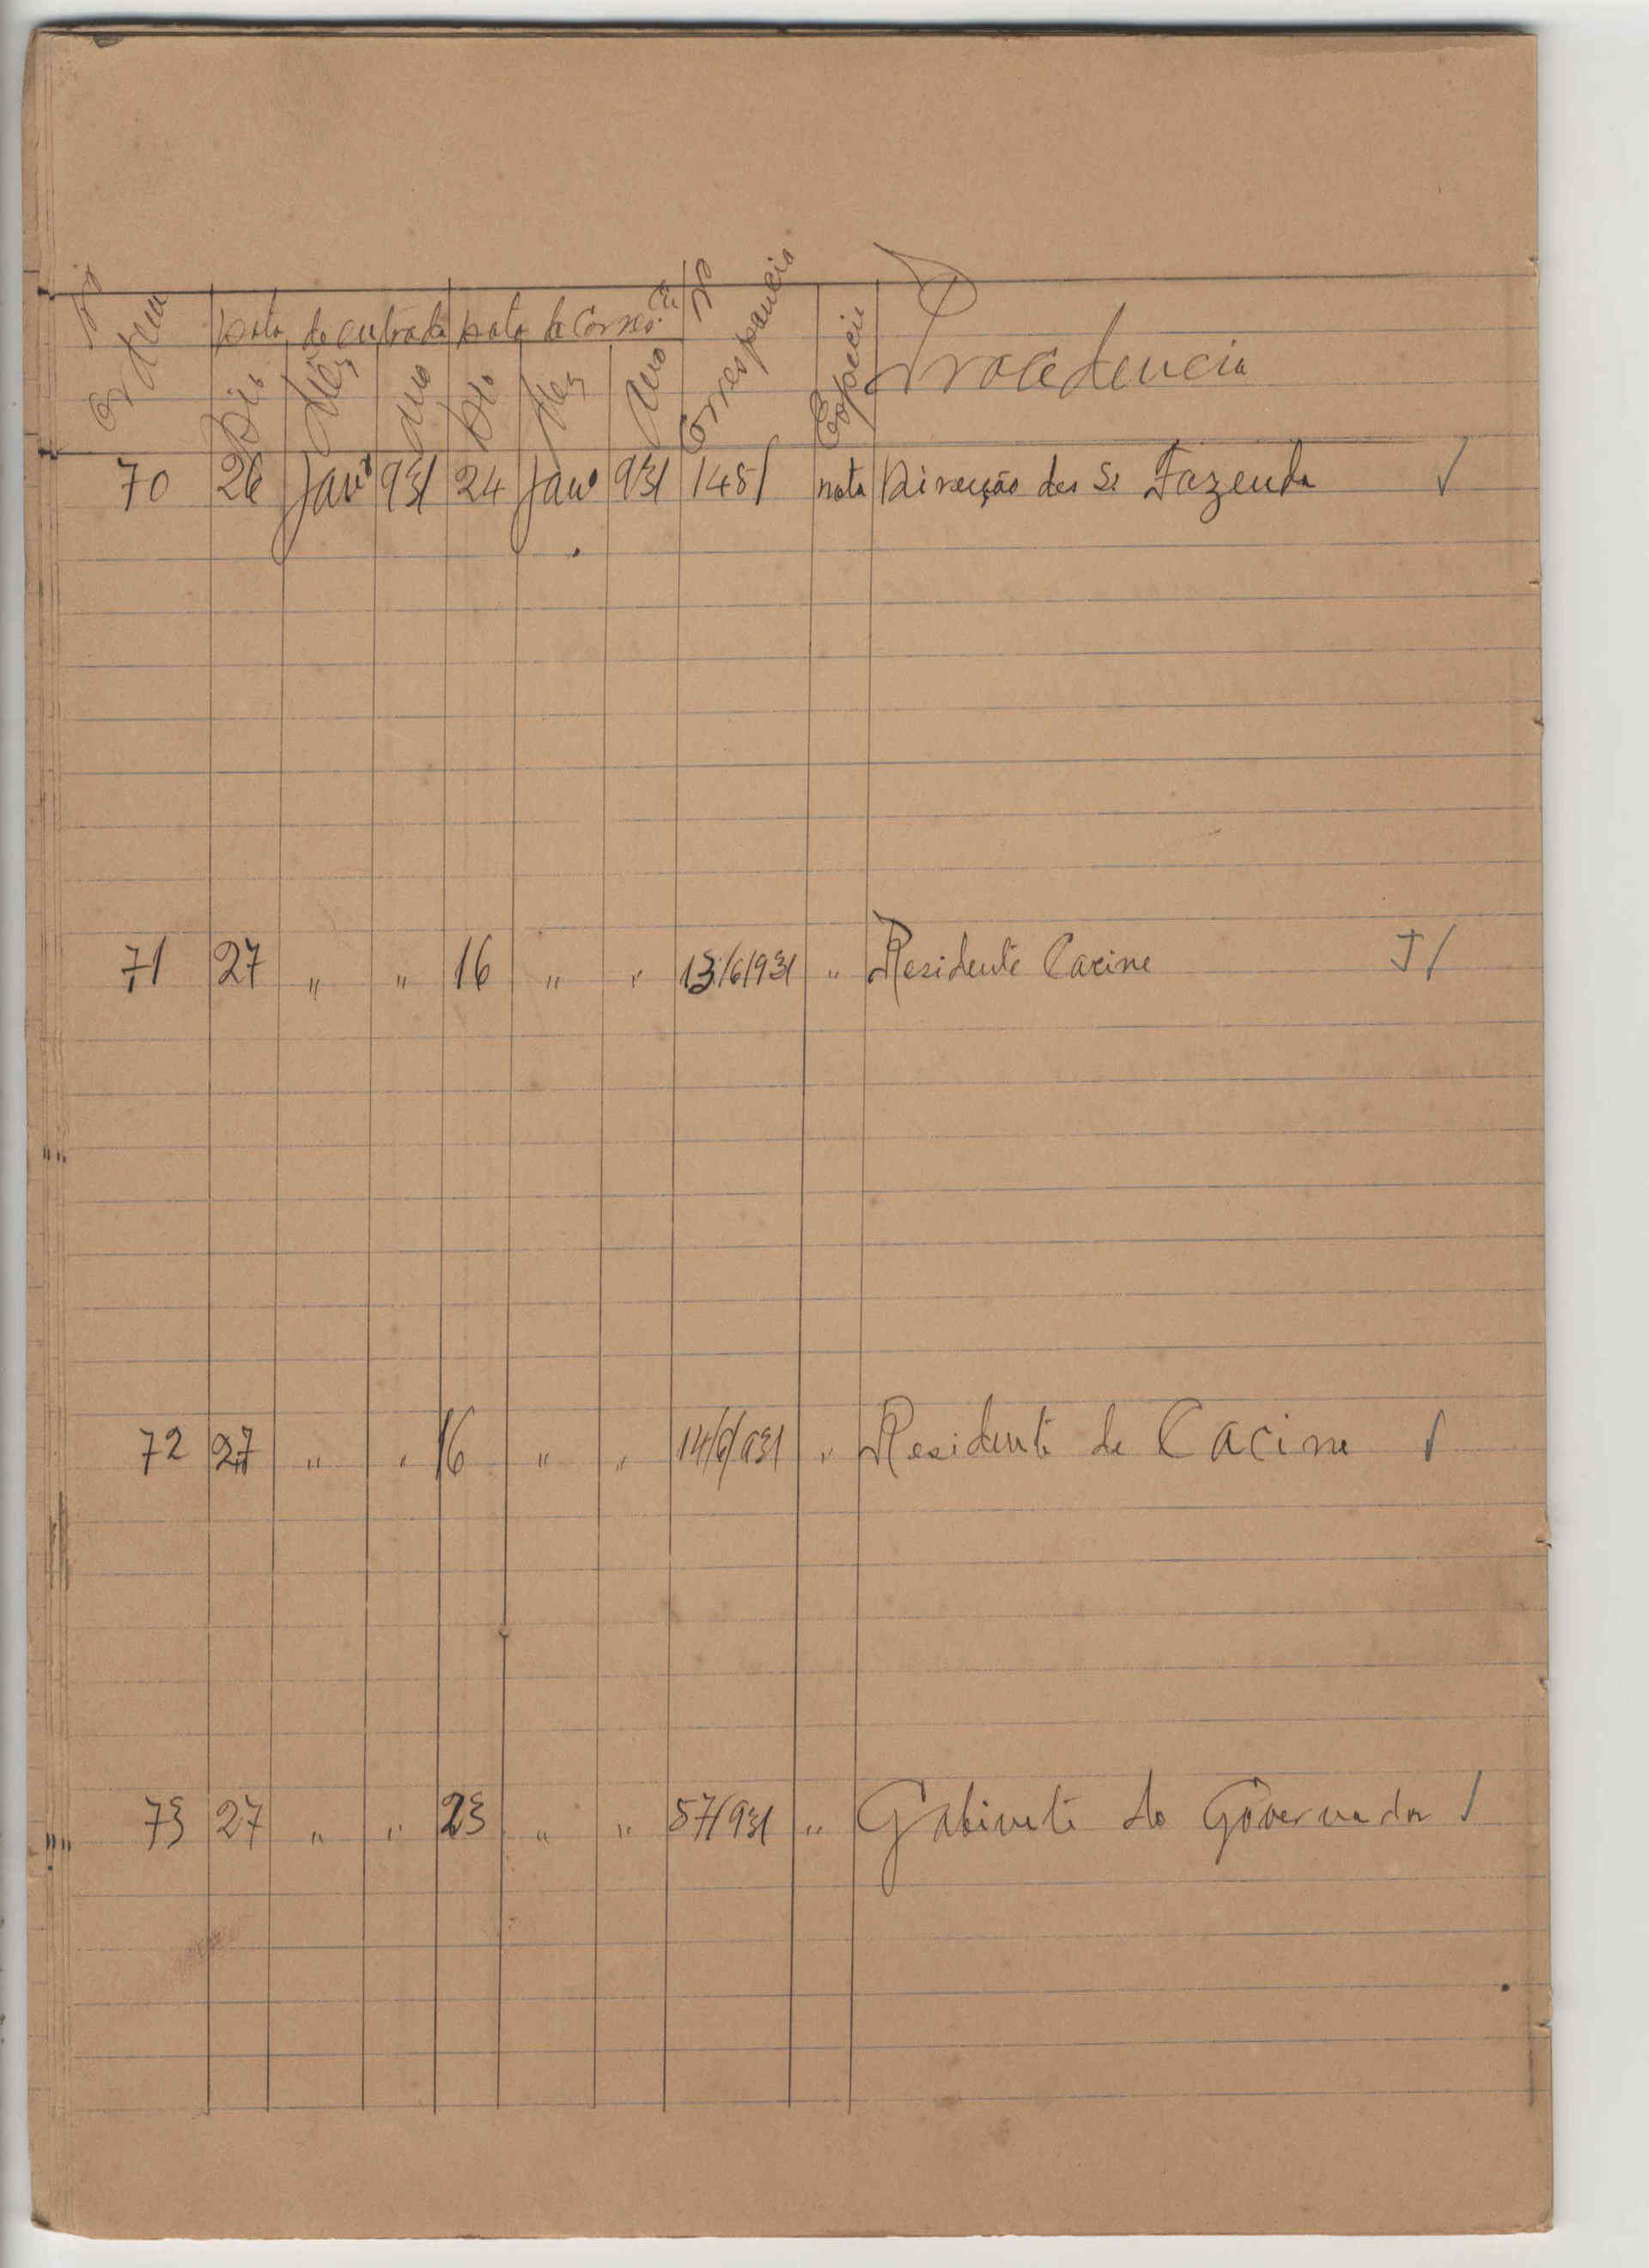 Nº Ordem Data de entrada Data de Corresp.cia Nº Correspancia Especie Procedencia
Dia Mês Ano Dia Mez Ano
70 26 Janº 931 24 Janº 931 148/ nota Direcção dos S. Fazenda ✓
71 27 " " 16 " " 13/6/931 " Residente Cacine J/
72 27 " " 16 " " 14/6/931 " Residente de Cacine ✓
73 27 " " 23 " " 57/931 " Gabinete do Governador ✓